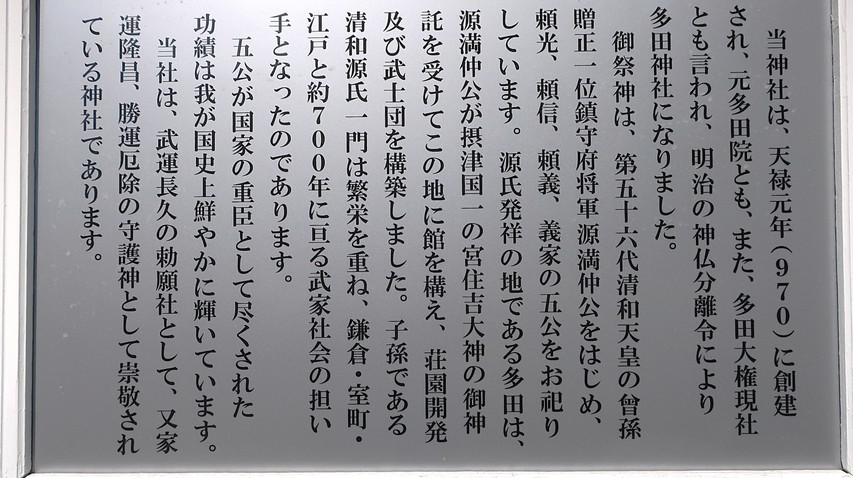 当神社は、天禄元年(970)に創建
され、元多田院とも、また、多田大権現社
とも言われ、明治の神仏分離令により
多田神社になりました。
御祭神は、第五十六代清和天皇の曾孫
贈正一位鎮守府将軍源満仲公をはじめ、
頼光、頼信、頼義、義家の五公をお祀り
しています。源氏発祥の地である多田は、
源満仲公が摂津国一の宮住吉大神の御神
託を受けてこの地に館を構え、荘園開発
及び武士団を構築しました。子孫である
清和源氏一門は繁栄を重ね、鎌倉・室町・
江戸と約700年に亘る武家社会の担い
手となったのであります。
五公が国家の重臣として尽くされた
功績は我が国史上鮮やかに輝いています。
当社は、武運長久の勅願社として、又家
運隆昌、勝運厄除の守護神として崇敬され
ている神社であります。